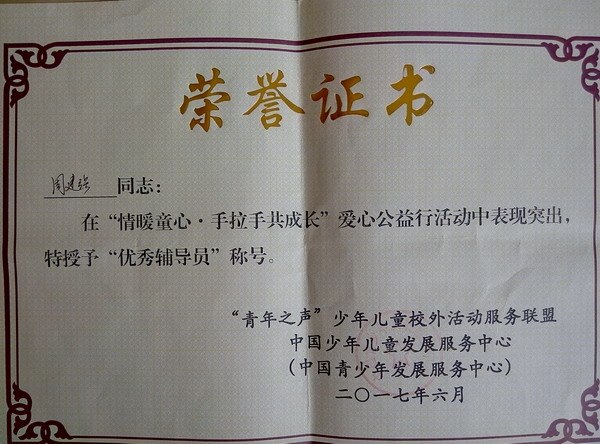 荣誉证书
周建强同志：
在“情暖童心·手拉手共成长”爱心公益行活动中表现突出，
特授予“优秀辅导员”称号。
“青年之声”少年儿童校外活动服务联盟
中国少年儿童发展服务中心
（中国青少年发展服务中心）
二〇一七年六月